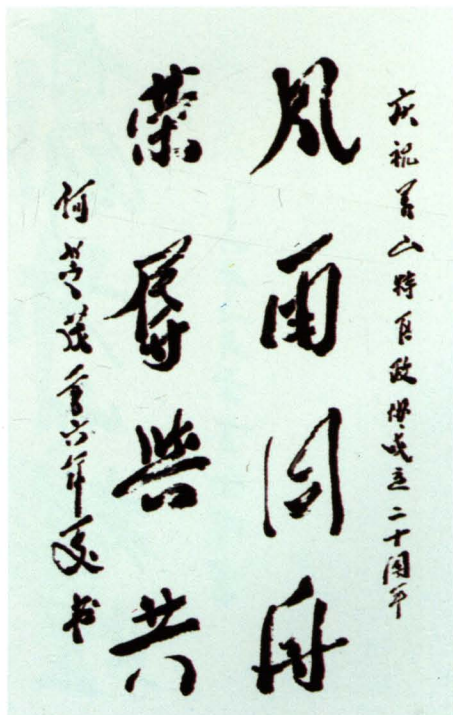 庆祝萧山特区政协成立二十周年
风雨同舟
荣辱与共
何
零六年夏书